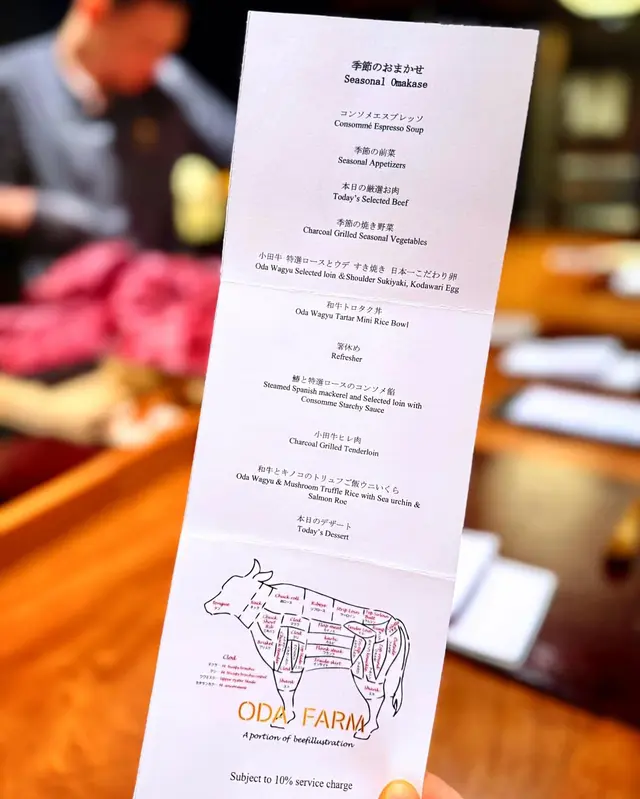 季節のおまかせ
Seasonal Omakase
コンソメエスプレッソ
Consommé Espresso Soup
季節の前菜
Seasonal Appetizers
本日の厳選お肉
Today's Selected Beef
季節の焼き野菜
Charcoal Grilled Seasonal Vegetables
小田牛 特選ロースとウデ すき焼き 日本一こだわり卵
Oda Wagyu Selected loin &Shoulder Sukiyaki, Kodawari Egg
和牛トロタク丼
Oda Wagyu Tartar Mini Rice Bowl
箸休め
Refresher
鰆と特選ロースのコンソメ餡
Steamed Spanish mackerel and Selected loin with
Consomme Starchy Sauce
小田牛ヒレ肉
Charcoal Grilled Tenderloin
和牛とキノコのトリュフご飯ウニいくら
Oda Wagyu & Mushroom Truffle Rice with Sea urchin &
Salmon Roe
本日のデザート
Today's Dessert
Tongue
Neck
Chuck roll
Ribeye
Strip Loin
Clod
Brisket
Flap meat
Shank
Shank
Clod
ODA FARM
A portion of beefillustration
Subject to 10% service charge